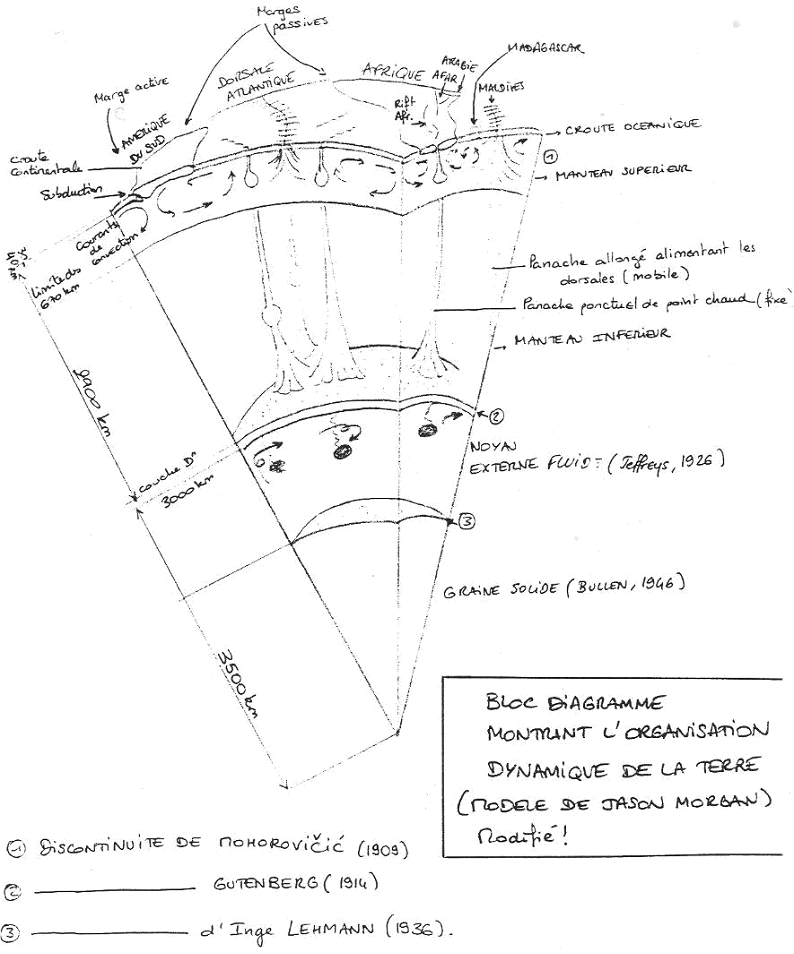 Marges
passives
Marge active
AMÉRIQUE
DU SUD
DORSALE
ATLANTIQUE
AFRIQUE
ARABIE
AFAR
Rift
Afr.
MADAGASCAR
MALDIVES
CROUTE OCEANIQUE
①
MANTEAU SUPERIEUR
croute
continentale
Subduction
courants
de
convection
limite des
670 km
Panache allongé alimentant les
dorsales (mobile)
Panache ponctuel de point chaud (fixe)
MANTEAU INFERIEUR
2900 km
②
NOYAU
EXTERNE FLUIDE (Jeffreys, 1926)
couche D"
3000 km
③
GRAINE SOLIDE (BULLEN, 1946)
3500 km
BLOC DIAGRAMME
MONTRANT L'ORGANISATION
DYNAMIQUE DE LA TERRE
(MODELE DE JASON MORGAN)
Modifié!
① DISCONTINUITE DE MOHOROVIČIĆ (1909)
② GUTENBERG (1914)
③ d'Inge LEHMANN (1936).